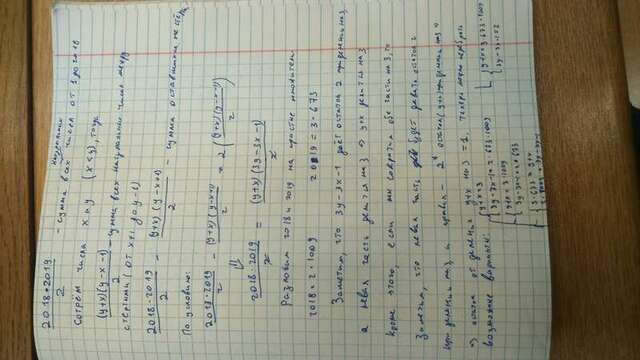 натуральных
2018·2019/2 - сумма всех чисел от 1 до 2018
Сотрём числа x и y (x<y), тогда
(y+x)(y-x-1)/2 - сумма всех натуральных чисел между
стёртыми (от x+1 до y-1)
2018·2019/2 - (y+x)(y-x+1)/2 - сумма оставшихся не стёр
По условию:
2018·2019/2 - (y+x)(y-x+1)/2 = 2((y+x)(y-x-1)/2)
⇓
2018·2019/2 = (y+x)(3y-3x-1)/2
Разложим 2018 и 2019 на простые множители
2018=2·1009 2019=3·673
Заметим, что 3y-3x-1 даёт остаток 2 при делении на 3,
а левая часть делится на 3 ⇒ y+x делится на 3
Кроме этого, если мы сократим обе части на 3, то
заметим, что левая часть будет давать остаток 2
при делении на 3, и правая - 2* остаток (y+x) при делении на 3 ⇒
⇒ остаток от деления y+x на 3 = 1. Теперь надо перебрать
возможные варианты:
{y+x=3
3y-3x-1=2·673·1009
{y+x=3·1009
3y-3x-1=2·673
{3·673=y+x
{y+x=3·673·1009
3y-3x-1=2